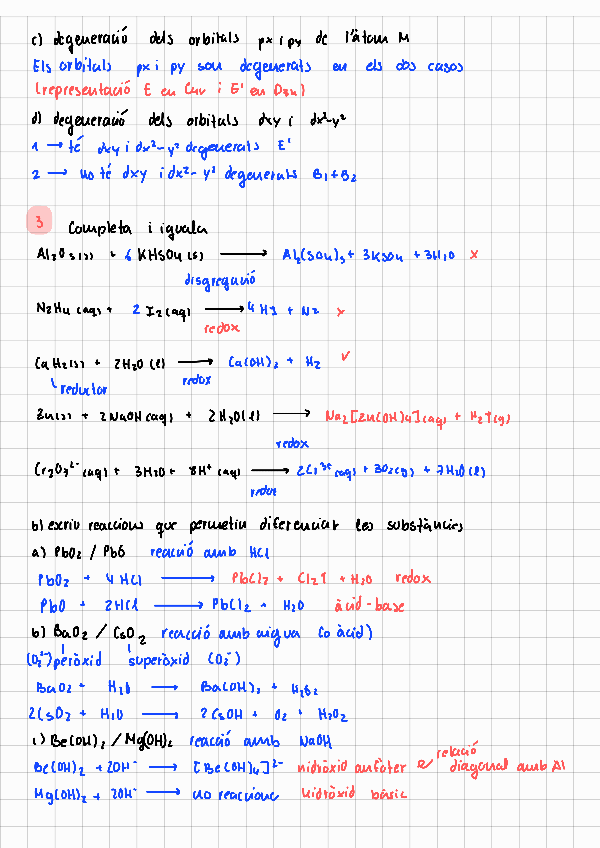 c) degeneració dels orbitals px i py de l'àtom M
Els orbitals px i py son degenerats en els dos casos
(representació E en C4v i E' en D3h)
d) degeneració dels orbitals dxy i dx²-y²
1 → té dxy i dx²-y² degenerats E'
2 → no té dxy i dx²-y² degenerats B1+B2
3 Completa i iguala
Al2O3(s) + 6 KHSO4(s) → Al2(SO4)3 + 3KSO4 + 3H2O x
disgregació
N2H4(aq) + 2 I2(aq) → 4HI + N2 x
redox
CaH2(s) + 2H2O(l) → Ca(OH)2 + H2 ✓
reductor redox
Zn(s) + 2NaOH(aq) + 2H2O(l) → Na2[Zn(OH)4](aq) + H2↑(g)
redox
Cr2O7²⁻(aq) + 3H2O2 + 8H⁺(aq) → 2Cr³⁺(aq) + 3O2(g) + 7H2O(l)
redox
b) escriu reaccions que permetin diferenciar les substàncies
a) PbO2 / PbO reacció amb HCl
PbO2 + 4HCl → PbCl2 + Cl2↑ + H2O redox
PbO + 2HCl → PbCl2 + H2O àcid-base
b) BaO2 / CsO2 reacció amb aigua (o àcid)
(O2²⁻) peròxid superòxid (O2⁻)
BaO2 + H2O → Ba(OH)2 + H2O2
2CsO2 + H2O → 2CsOH + O2 + H2O2
c) Be(OH)2 / Mg(OH)2 reacció amb NaOH
relació
Be(OH)2 + 2OH⁻ → [Be(OH)4]²⁻ hidròxid amfòter diagonal amb Al
Mg(OH)2 + 2OH⁻ → no reacciona hidròxid bàsic